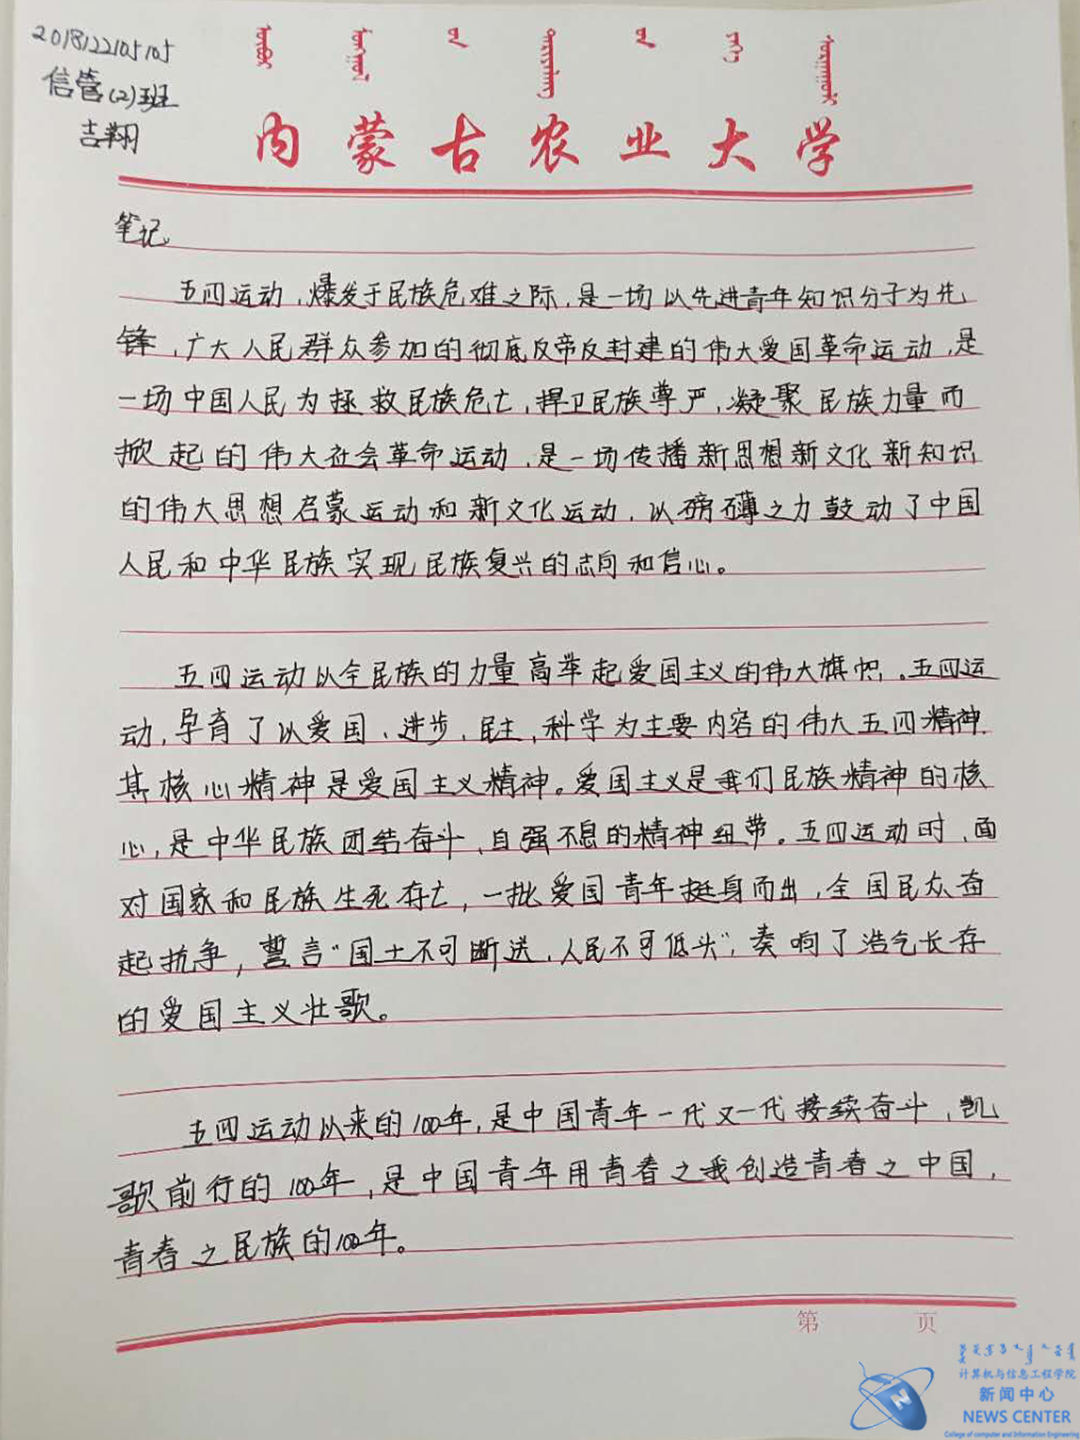 2018122105105
信管(2)班
吉翔
内蒙古农业大学
笔记
五四运动,爆发于民族危难之际,是一场以先进青年知识分子为先
锋,广大人民群众参加的彻底反帝反封建的伟大爱国革命运动,是
一场中国人民为拯救民族危亡,捍卫民族尊严,凝聚民族力量而
掀起的伟大社会革命运动,是一场传播新思想新文化新知识
的伟大思想启蒙运动和新文化运动,以磅礴之力鼓动了中国
人民和中华民族实现民族复兴的志向和信心。
五四运动以全民族的力量高举起爱国主义的伟大旗帜。五四运
动,孕育了以爱国、进步、民主,科学为主要内容的伟大五四精神.
其核心精神是爱国主义精神。爱国主义是我们民族精神的核
心,是中华民族团结奋斗,自强不息的精神纽带。五四运动时,面
对国家和民族生死存亡,一批爱国青年挺身而出,全国民众奋
起抗争,誓言“国土不可断送,人民不可低头”,奏响了浩气长存
的爱国主义壮歌。
五四运动以来的100年,是中国青年一代又一代接续奋斗,凯
歌前行的100年,是中国青年用青春之我创造青春之中国,
青春之民族的100年。
第 页
计算机与信息工程学院
新闻中心
NEWS CENTER
College of computer and Information Engineering